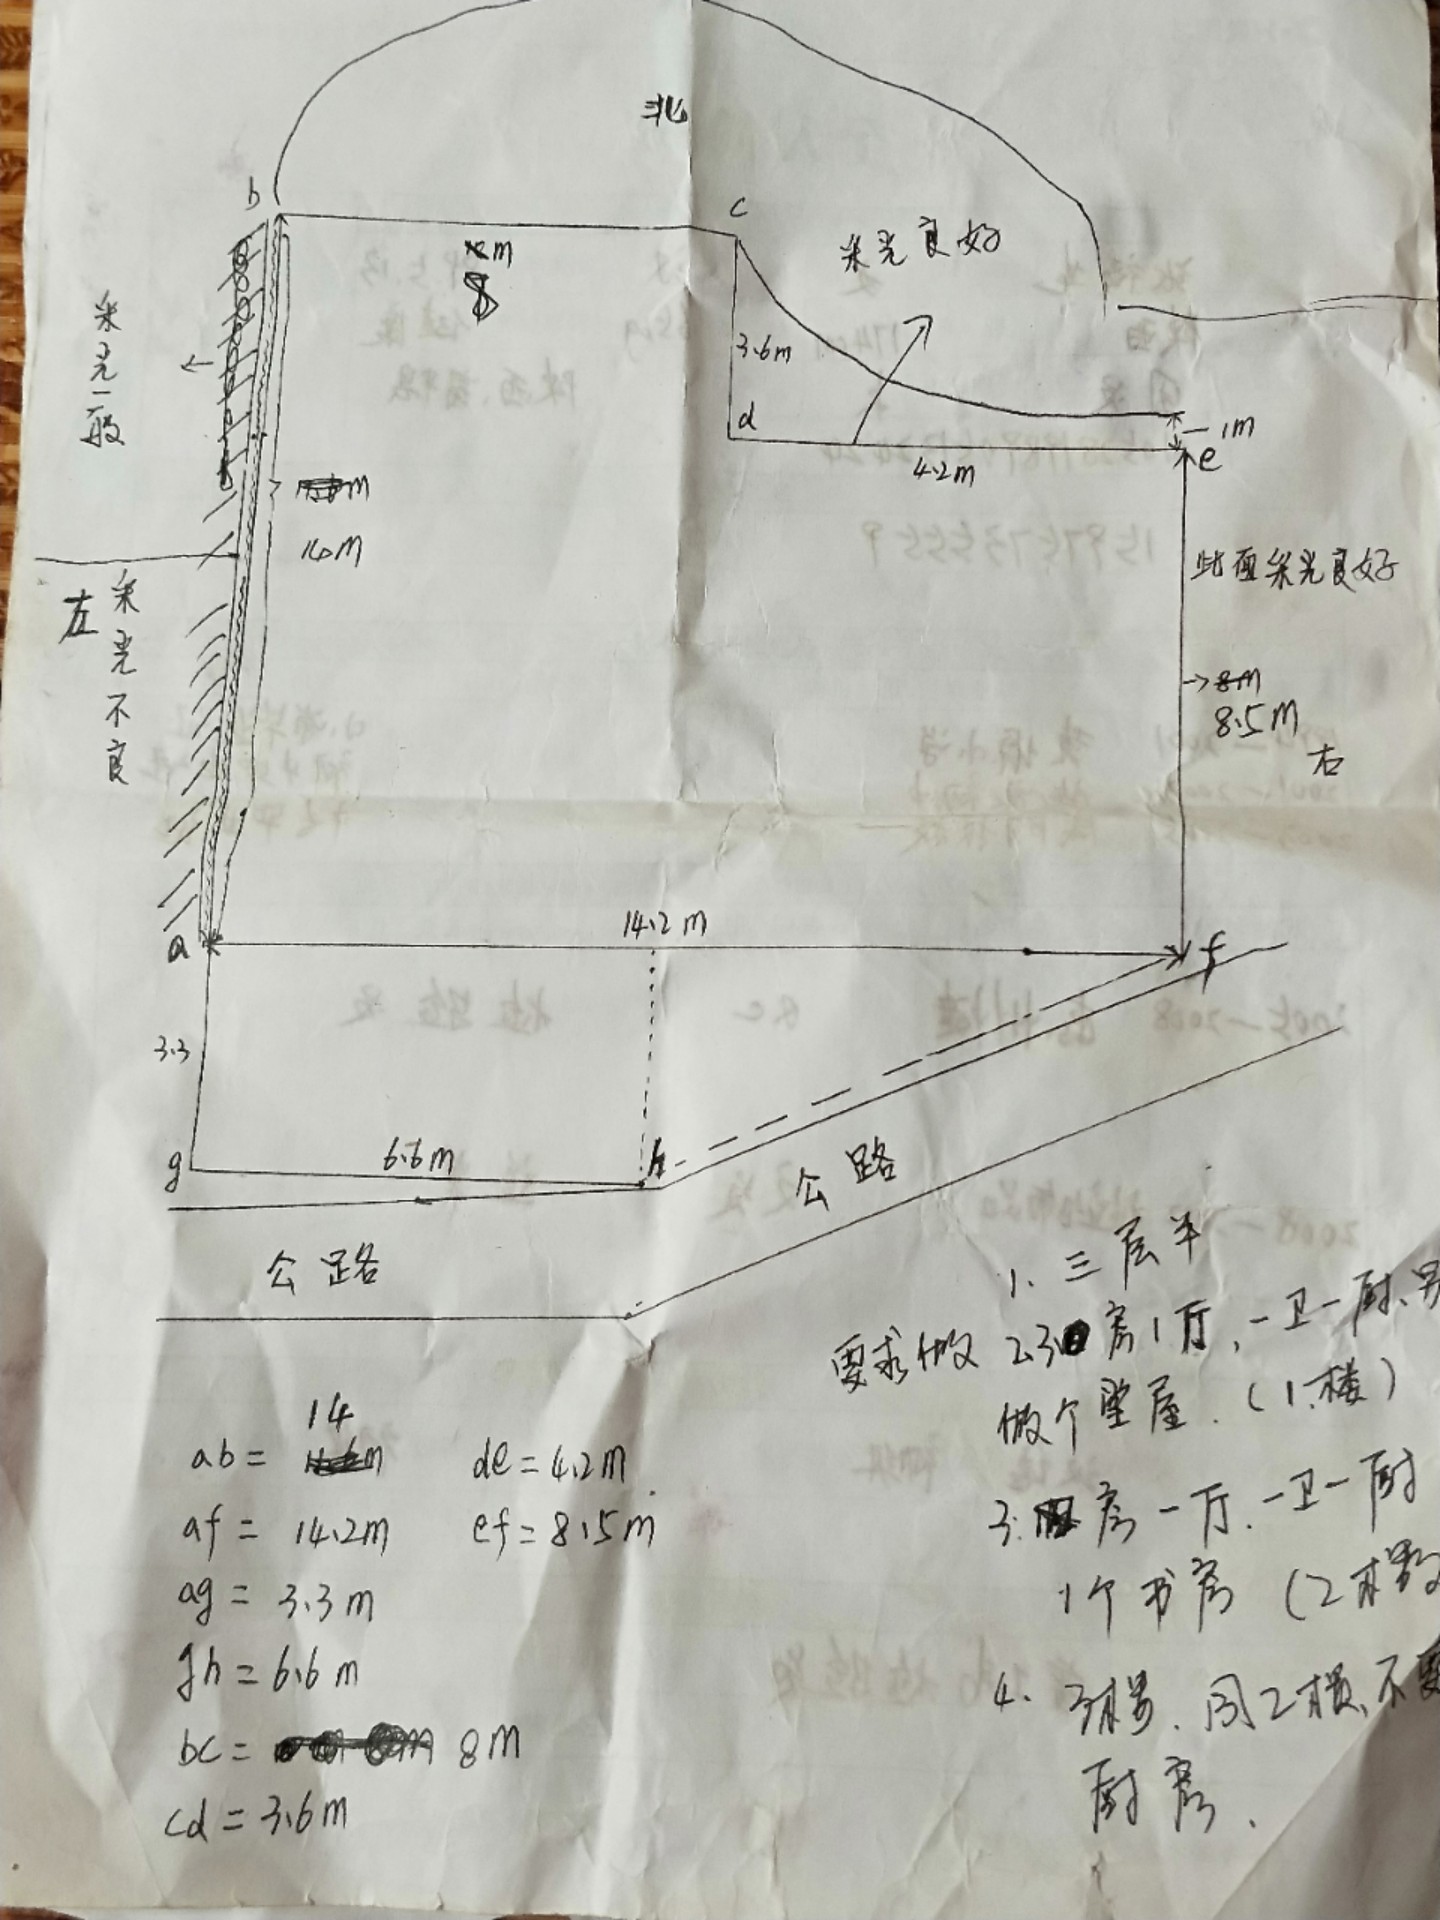 北
b
c
采光良好
m
8
采光一般
3.6m
d
1m
e
4.2m
m
14m
此面采光良好
左
采光不良
8m
8.5m
右
14.2m
a
f
3.3
6.6m
g
h
公路
公路
1、三层半
要求做 2、3 房1厅、一卫一厨、另
做个堂屋.(1楼)
3. 房一厅、一卫一厨
1个书房 (2楼
4、3楼、同2楼、不要
厨房、
14
ab= m
de=4.2m
af= 14.2m
ef=8.5m
ag= 3.3m
gh=6.6m
bc= 8m
cd=3.6m